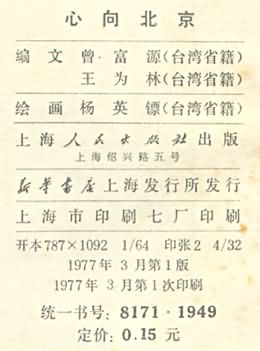 心向北京
编文 曾·富源(台湾省籍)
王为林(台湾省籍)
绘画 杨英镖(台湾省籍)
上海人民出版社出版
上海绍兴路五号
新华书店上海发行所发行
上海市印刷七厂印刷
开本787×1092 1/64 印张2 4/32
1977年3月第1版
1977年3月第1次印刷
统一书号:8171·1949
定价:0.15元